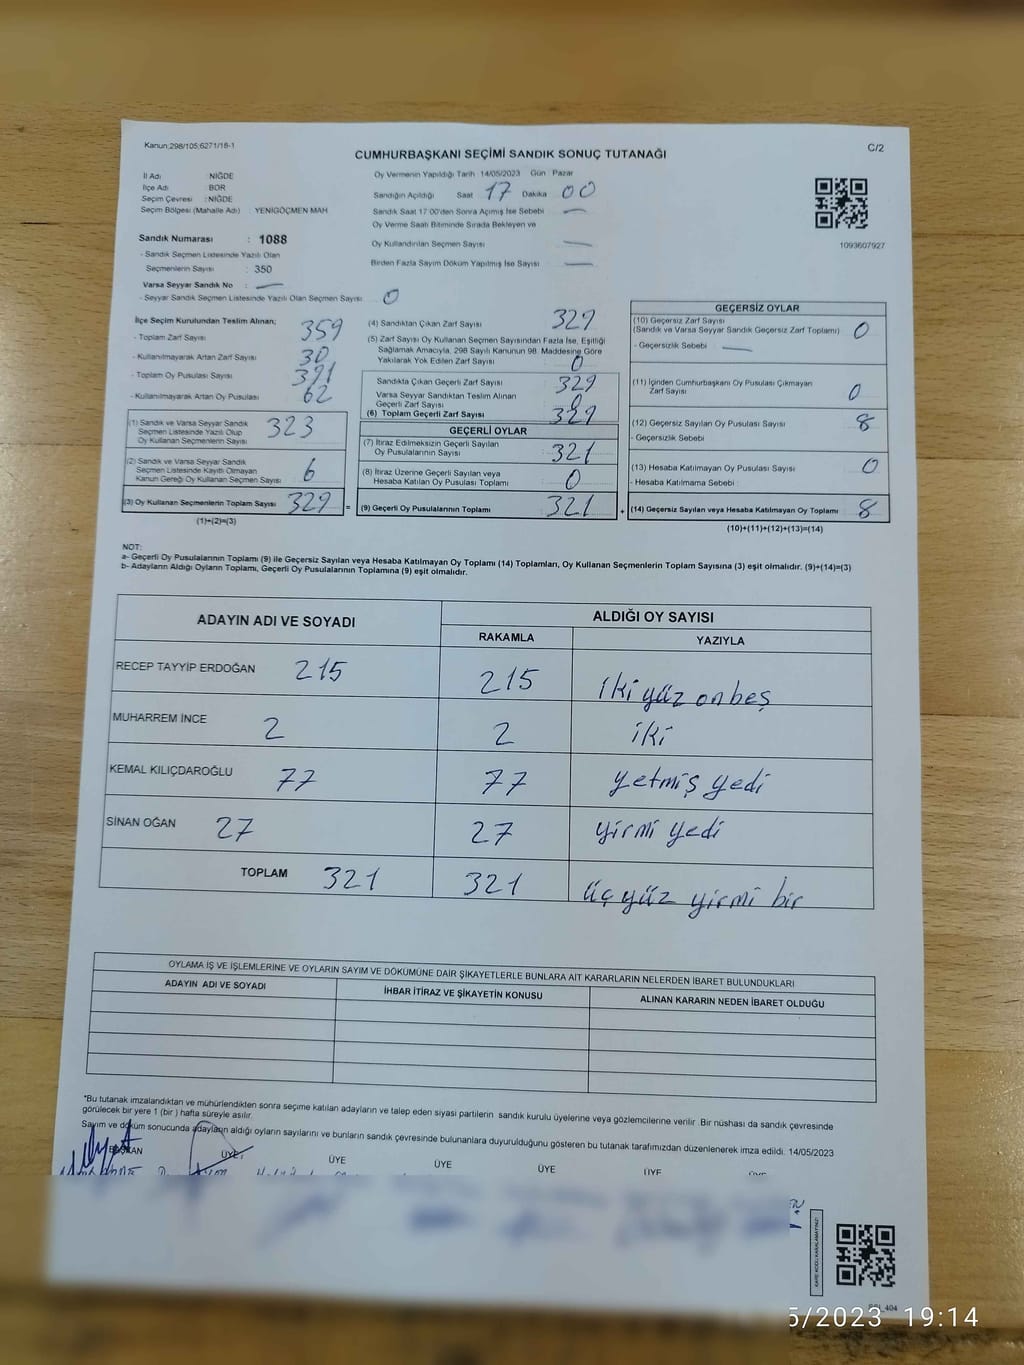 Kanun:298/105;6271/18-1
C/2
CUMHURBAŞKANI SEÇİMİ SANDIK SONUÇ TUTANAĞI
İl Adı : NİĞDE
İlçe Adı : BOR
Seçim Çevresi : NİĞDE
Seçim Bölgesi (Mahalle Adı) : YENİGÖÇMEN MAH
Sandık Numarası : 1088
- Sandık Seçmen Listesinde Yazılı Olan
Seçmenlerin Sayısı : 350
Varsa Seyyar Sandık No : —
- Seyyar Sandık Seçmen Listesinde Yazılı Olan Seçmen Sayısı 0
Oy Vermenin Yapıldığı Tarih 14/05/2023 Gün Pazar
Sandığın Açıldığı Saat 17 Dakika 00
Sandık Saat 17:00'den Sonra Açımış İse Sebebi —
Oy Verme Saati Bitiminde Sırada Bekleyen ve
Oy Kullandırılan Seçmen Sayısı —
Birden Fazla Sayım Döküm Yapılmış İse Sayısı —
1093607927
İlçe Seçim Kurulundan Teslim Alınan;
- Toplam Zarf Sayısı 359
- Kullanılmayarak Artan Zarf Sayısı 30
- Toplam Oy Pusulası Sayısı 391
- Kullanılmayarak Artan Oy Pusulası 62
(1) Sandık ve Varsa Seyyar Sandık
Seçmen Listesinde Yazılı Olup
Oy Kullanan Seçmenlerin Sayısı 323
(2) Sandık ve Varsa Seyyar Sandık
Seçmen Listesinde Kayıtlı Olmayan
Kanun Gereği Oy Kullanan Seçmen Sayısı 6
(3) Oy Kullanan Seçmenlerin Toplam Sayısı 329 =
(1)+(2)=(3)
(4) Sandıktan Çıkan Zarf Sayısı 329
(5) Zarf Sayısı Oy Kullanan Seçmen Sayısından Fazla İse, Eşitliği
Sağlamak Amacıyla, 298 Sayılı Kanunun 98. Maddesine Göre
Yakılarak Yok Edilen Zarf Sayısı 0
Sandıkta Çıkan Geçerli Zarf Sayısı 329
Varsa Seyyar Sandıktan Teslim Alınan
Geçerli Zarf Sayısı 0
(6) Toplam Geçerli Zarf Sayısı 329
GEÇERLİ OYLAR
(7) İtiraz Edilmeksizin Geçerli Sayılan
Oy Pusulalarının Sayısı 321
(8) İtiraz Üzerine Geçerli Sayılan veya
Hesaba Katılan Oy Pusulaları Toplamı 0
(9) Geçerli Oy Pusulalarının Toplamı 321 +
GEÇERSİZ OYLAR
(10) Geçersiz Zarf Sayısı
(Sandık ve Varsa Seyyar Sandık Geçersiz Zarf Toplamı) 0
- Geçersizlik Sebebi —
(11) İçinden Cumhurbaşkanı Oy Pusulası Çıkmayan
Zarf Sayısı 0
(12) Geçersiz Sayılan Oy Pusulası Sayısı 8
- Geçersizlik Sebebi
(13) Hesaba Katılmayan Oy Pusulası Sayısı 0
- Hesaba Katılmama Sebebi
(14) Geçersiz Sayılan veya Hesaba Katılmayan Oy Toplamı 8
(10)+(11)+(12)+(13)=(14)
NOT:
a- Geçerli Oy Pusulalarının Toplamı (9) ile Geçersiz Sayılan veya Hesaba Katılmayan Oy Toplamı (14) Toplamları, Oy Kullanan Seçmenlerin Toplam Sayısına (3) eşit olmalıdır. (9)+(14)=(3)
b- Adayların Aldığı Oyların Toplamı, Geçerli Oy Pusulalarının Toplamına (9) eşit olmalıdır.
ADAYIN ADI VE SOYADI
ALDIĞI OY SAYISI
RAKAMLA YAZIYLA
RECEP TAYYİP ERDOĞAN 215 215 iki yüz on beş
MUHARREM İNCE 2 2 iki
KEMAL KILIÇDAROĞLU 77 77 yetmiş yedi
SİNAN OĞAN 27 27 yirmi yedi
TOPLAM 321 321 üç yüz yirmi bir
OYLAMA İŞ VE İŞLEMLERİNE VE OYLARIN SAYIM VE DÖKÜMÜNE DAİR ŞİKAYETLERLE BUNLARA AİT KARARLARIN NELERDEN İBARET BULUNDUKLARI
ADAYIN ADI VE SOYADI İHBAR İTİRAZ VE ŞİKAYETİN KONUSU ALINAN KARARIN NEDEN İBARET OLDUĞU
*Bu tutanak imzalandıktan ve mühürlendikten sonra seçime katılan adayların ve talep eden siyasi partilerin sandık kurulu üyelerine veya gözlemcilerine verilir. Bir nüshası da sandık çevresinde
görülecek bir yere 1 (bir) hafta süreyle asılır.
Sayım ve döküm sonucunda adayların aldığı oyların sayılarını ve bunların sandık çevresinde bulunanlara duyurulduğunu gösteren bu tutanak tarafımızdan düzenlenerek imza edildi. 14/05/2023
BAŞKAN ÜYE ÜYE ÜYE ÜYE ÜYE ÜYE
5/2023 19:14